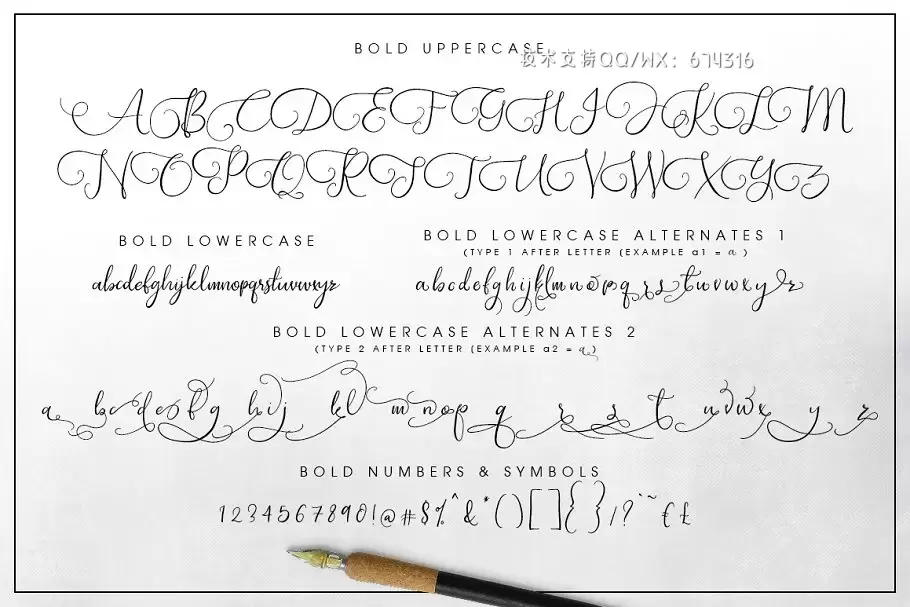 BOLD UPPERCASE
技术支持QQ/WX: 674316
ABCDEFGHIJKLM
NOPQRSTUVWXYZ
BOLD LOWERCASE
abcdefghijklmnopqrstuvwxyz
BOLD LOWERCASE ALTERNATES 1
(TYPE 1 AFTER LETTER (EXAMPLE a1 = a )
abcdefghijklmnopqrstuvwxyz
BOLD LOWERCASE ALTERNATES 2
(TYPE 2 AFTER LETTER (EXAMPLE a2 = a)
abcdefghijklmnopqrstuvwxyz
BOLD NUMBERS & SYMBOLS
1234567890!@#$%^&*()[]{}/?`~€£